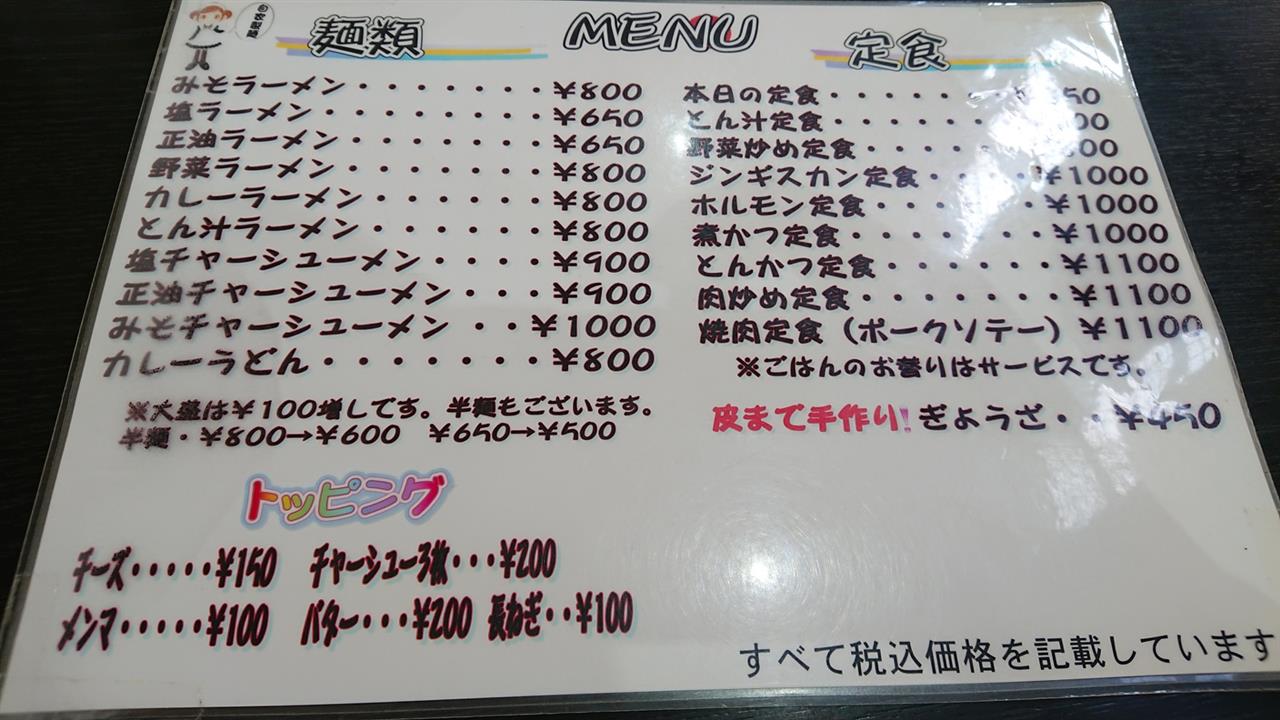 麺類
MENU
定食
みそラーメン・・・・・・・¥800
塩ラーメン・・・・・・・・¥650
正油ラーメン・・・・・・・¥650
野菜ラーメン・・・・・・・¥800
カレーラーメン・・・・・・¥800
とん汁ラーメン・・・・・・¥800
塩チャーシューメン・・・・¥900
正油チャーシューメン・・・¥900
みそチャーシューメン・・¥1000
カレーうどん・・・・・・・¥800
※大盛は¥100増しです。半麺もございます。
半麺・¥800→¥600 ¥650→¥500
トッピング
チーズ・・・・・¥150 チャーシュー3枚・・・¥200
メンマ・・・・・¥100 バター・・・¥200 長ねぎ・・¥100
本日の定食・・・・・・・
とん汁定食・・・・・・
野菜炒め定食・・・・・・
ジンギスカン定食・・・・¥1000
ホルモン定食・・・・・・¥1000
煮かつ定食・・・・・・・¥1000
とんかつ定食・・・・・・¥1100
肉炒め定食・・・・・・・¥1100
焼肉定食（ポークソテー）¥1100
※ごはんのお替りはサービスです。
皮まで手作り!ぎょうざ・・¥450
すべて税込価格を記載しています